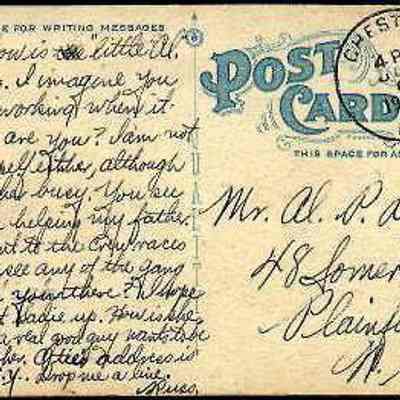 E FOR WRITING MESSAGES
ow is the little Al.
I imagine you
working when it
are you? I am not
self either, although
her busy. You see
helping my father.
nt to the Crew races
see any of the gang
you there? I hope
t badie up. You is the
a real good guy wants to be
her. Otees address is
Y. - Drop me a line.
Russ.
POST
CARD
THIS SPACE FOR A
CHEST
4 P
19
Mr. Al. P. D
48 Somer
Plainf
N.